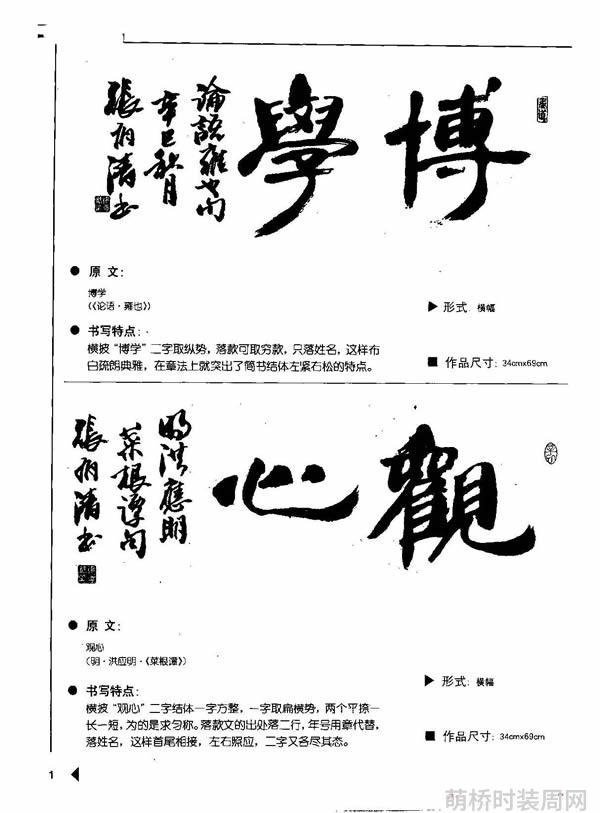 博學
論語雍也句
辛巳秋月
張
清书
● 原文：
博学
（《论语·雍也》）
▶ 形式：横幅
● 书写特点：
横披“博学”二字取纵势，落款可取穷款，只落姓名，这样布
白疏朗典雅，在章法上就突出了简书结体左紧右松的特点。
■ 作品尺寸：34cm×69cm
觀心
明洪應明
菜根谭句
張
清书
● 原文：
观心
（明·洪应明·《菜根谭》）
▶ 形式：横幅
● 书写特点：
横披“观心”二字结体一字方整，一字取扁横势，两个平捺一
长一短，为的是求匀称。落款文的出处落二行，年号用章代替，
落姓名，这样首尾相接，左右照应，二字又各尽其态。
■ 作品尺寸：34cm×69cm
1
萌桥时装周网